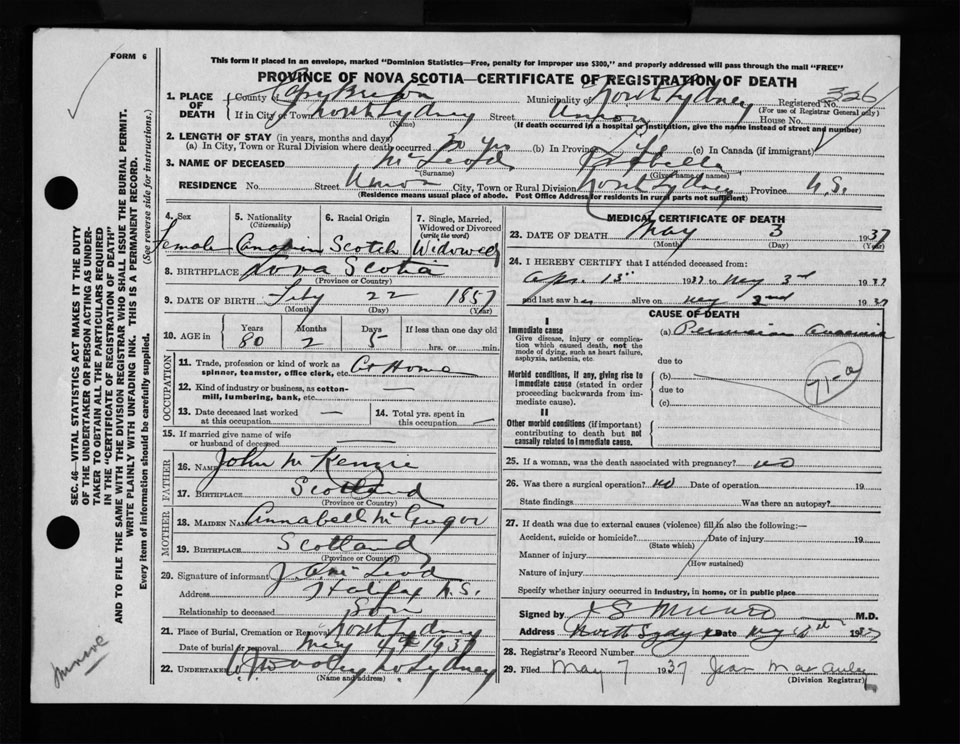 FORM 6
This form if placed in an envelope, marked "Dominion Statistics—Free, penalty for improper use $300," and properly addressed will pass through the mail "FREE"
PROVINCE OF NOVA SCOTIA—CERTIFICATE OF REGISTRATION OF DEATH
326
1. PLACE OF DEATH
County of Cape Breton Municipality of North Sydney Registered No.
(For use of Registrar General only)
If in City or Town North Sydney Street Union House No.
(Name) (If death occurred in a hospital or institution, give the name instead of street and number)
2. LENGTH OF STAY (in years, months and days)
(a) In City, Town or Rural Division where death occurred 50 yrs (b) In Province (c) In Canada (if immigrant)
3. NAME OF DECEASED McLeod
(Surname) (Given name or names)
RESIDENCE No. Street Union City, Town or Rural Division North Sydney Province N.S.
(Residence means usual place of abode. Post Office Address for residents in rural parts not sufficient)
4. Sex
Female
5. Nationality
(Citizenship)
Canadian
6. Racial Origin
Scotch
7. Single, Married, Widowed or Divorced
(write the word)
Widowed
8. BIRTHPLACE Nova Scotia
(Province or Country)
9. DATE OF BIRTH Feby 22 1857
(Month) (Day) (Year)
10. AGE in
Years Months Days If less than one day old
80 2 5 hrs. or min.
OCCUPATION
11. Trade, profession or kind of work as
spinner, teamster, office clerk, etc. At Home
12. Kind of industry or business, as cotton-
mill, lumbering, bank, etc.
13. Date deceased last worked at this occupation —
14. Total yrs. spent in this occupation —
15. If married give name of wife
or husband of deceased —
FATHER
16. NAME John McKenzie
17. BIRTHPLACE Scotland
(Province or Country)
MOTHER
18. MAIDEN NAME Annabell McGregor
19. BIRTHPLACE Scotland
(Province or Country)
20. Signature of informant McLeod
Address Halifax N.S.
Relationship to deceased Son
21. Place of Burial, Cremation or Removal North Sydney
Date of burial or removal May 1937
22. UNDERTAKER No Sydney
(Name and address)
MEDICAL CERTIFICATE OF DEATH
23. DATE OF DEATH May 3 1937
(Month) (Day) (Year)
24. I HEREBY CERTIFY that I attended deceased from:
Apr. 15th 1937 to May 3rd 1937
and last saw her alive on May 2nd 1937
CAUSE OF DEATH
I
Immediate cause
Give disease, injury or complica-
tion which caused death, not the
mode of dying, such as heart failure,
asphyxia, asthenia, etc.
(a) Pernicious Anaemia
due to
Morbid conditions, if any, giving rise to
immediate cause (stated in order
proceeding backwards from im-
mediate cause).
(b)
due to
(c)
71-a
II
Other morbid conditions (if important)
contributing to death but not
causally related to immediate cause.
25. If a woman, was the death associated with pregnancy? No
26. Was there a surgical operation? No Date of operation 19
State findings Was there an autopsy?
27. If death was due to external causes (violence) fill in also the following:—
Accident, suicide or homicide? Date of injury 19
(State which)
Manner of injury
(How sustained)
Nature of injury
Specify whether injury occurred in industry, in home, or in public place
Signed by M.D.
Address North Sydney Date May 1937
28. Registrar's Record Number
29. Filed May 7 1937 Jean MacAulay
(Division Registrar)
SEC. 46—VITAL STATISTICS ACT MAKES IT THE DUTY
OF THE UNDERTAKER OR PERSON ACTING AS UNDER-
TAKER TO OBTAIN ALL THE PARTICULARS REQUIRED
IN THE "CERTIFICATE OF REGISTRATION OF DEATH"
AND TO FILE THE SAME WITH THE DIVISION REGISTRAR WHO SHALL ISSUE THE BURIAL PERMIT.
WRITE PLAINLY WITH UNFADING INK. THIS IS A PERMANENT RECORD.
Every item of information should be carefully supplied. (See reverse side for instructions.)
Munroe